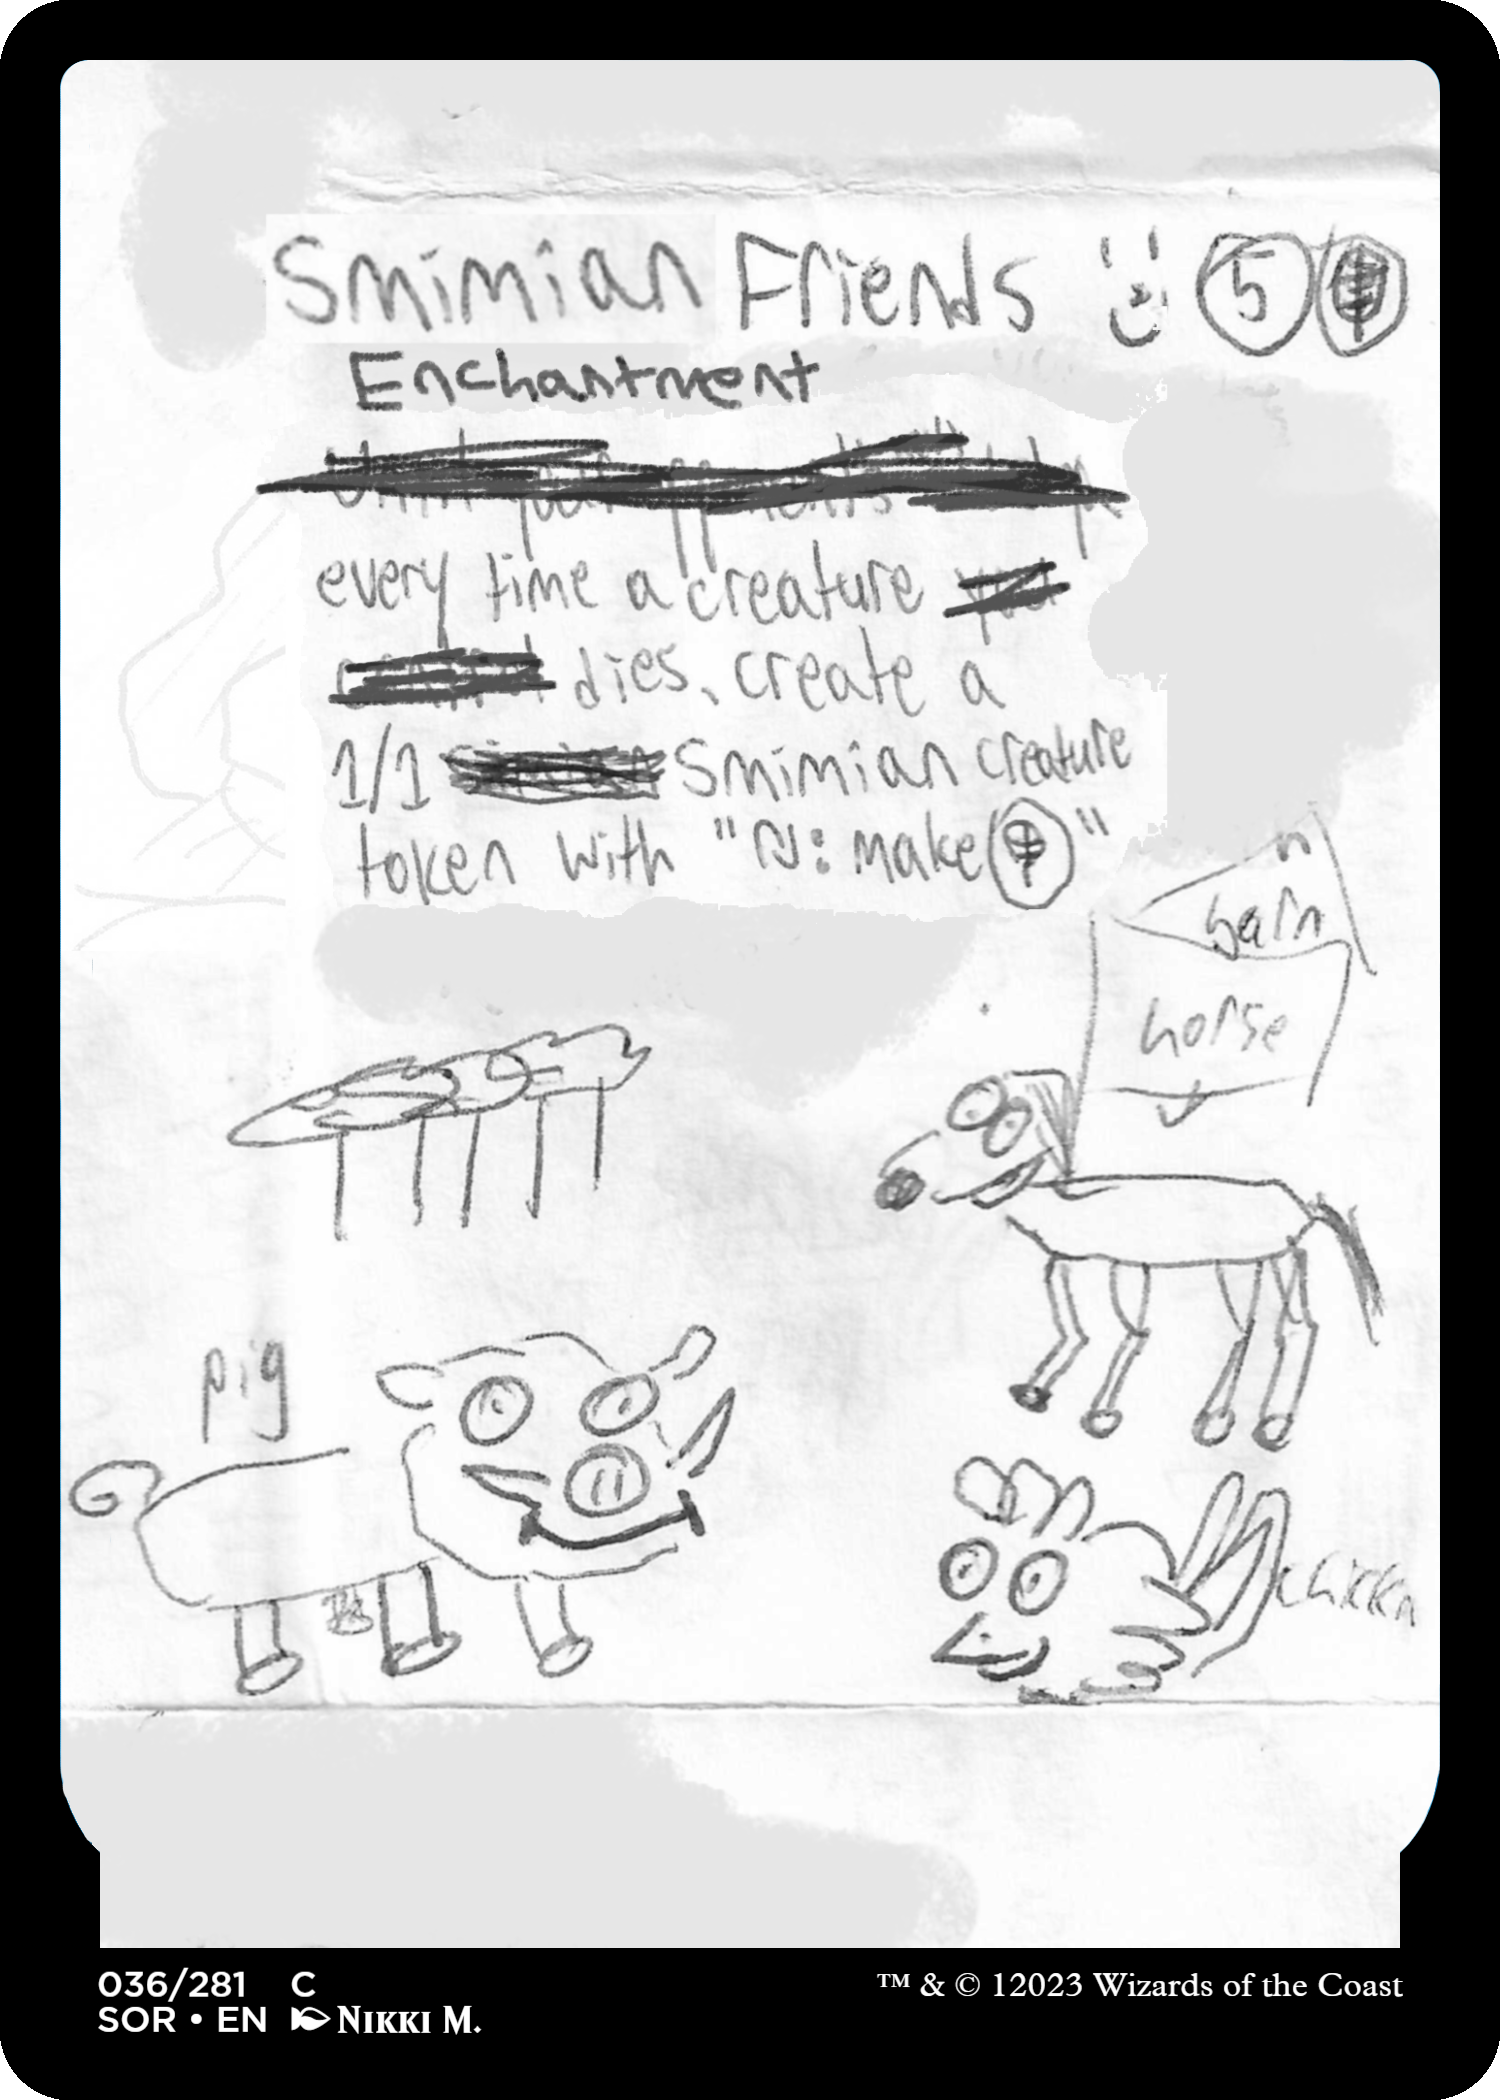 Smimian Friends 5
Enchantment
every time a creature
dies, create a
1/1 Smimian creature
token with ": make "
barn
horse
pig
chikkn
036/281 C
SOR • EN NIKKI M.
™ & © 12023 Wizards of the Coast